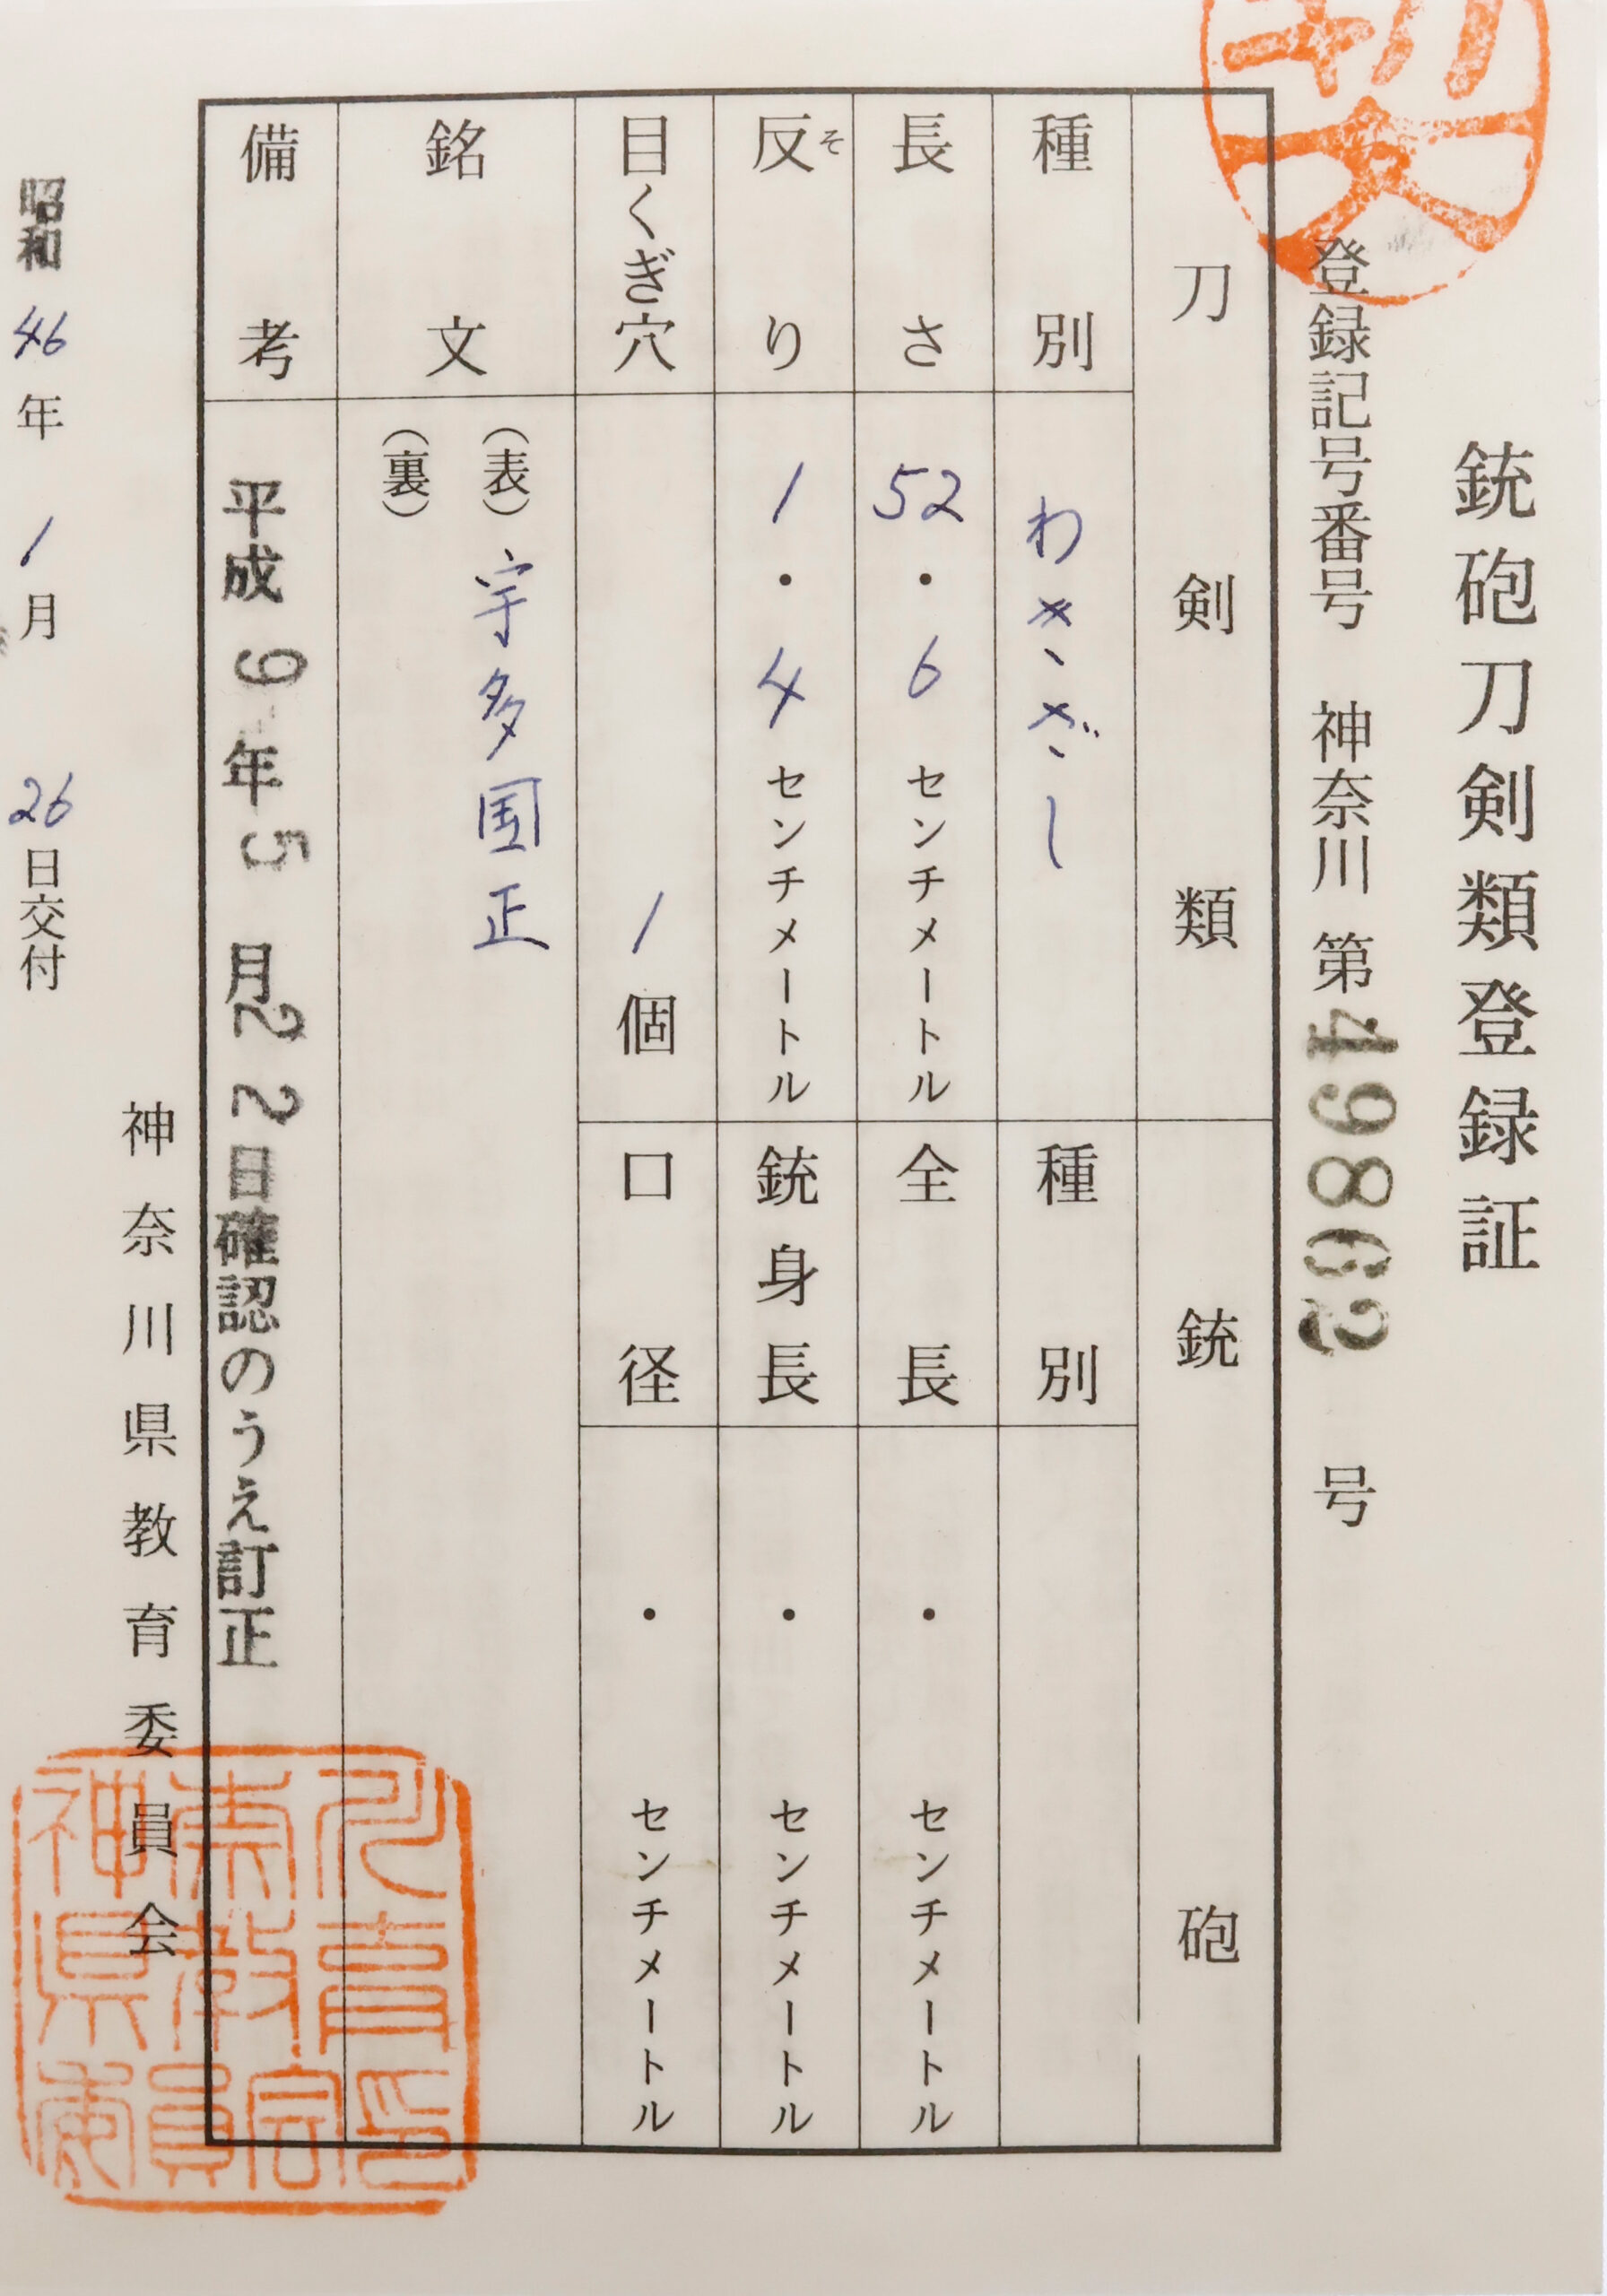 銃砲刀剣類登録証
登録記号番号 神奈川 第49862号
刀剣類
銃砲
種別 わきざし
種別
長さ 52.6センチメートル
全長 ・ センチメートル
反り 1.4センチメートル
そ
銃身長 ・ センチメートル
目くぎ穴 1個
口径 ・ センチメートル
銘文 (表) 宇多国正
(裏)
備考 平成9年5月22日確認のうえ訂正
神奈川県教育委員会
昭和46年1月26日交付